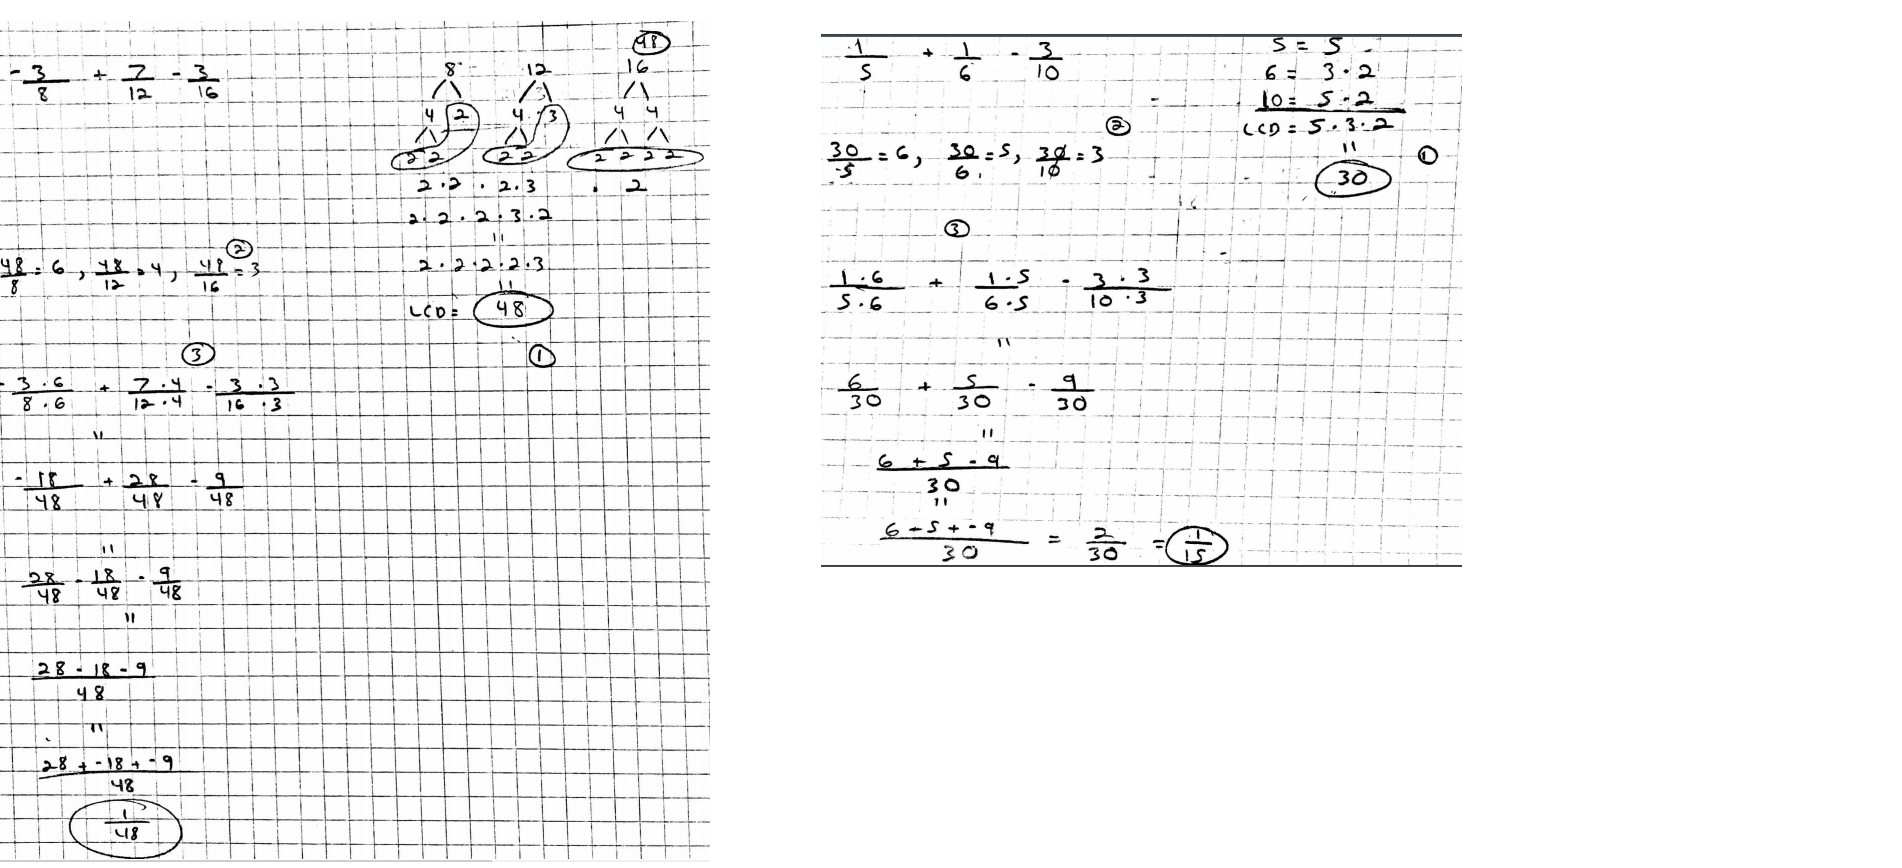 48
- 3/8 + 7/12 - 3/16
8 12 16
4 2 4 3 4 4
2 2 2 2 2 2 2 2
2 · 2 · 2 · 3 · 2
2 · 2 · 2 · 3 · 2
"
2 · 2 · 2 · 2 · 3
"
LCD = 48
1
2
48/8 = 6, 48/12 = 4, 48/16 = 3
3
- 3 · 6/8 · 6 + 7 · 4/12 · 4 - 3 · 3/16 · 3
"
- 18/48 + 28/48 - 9/48
"
28/48 - 18/48 - 9/48
"
28 - 18 - 9/48
"
28 + -18 + -9/48
1/48
1/5 + 1/6 - 3/10
5 = 5
6 = 3 · 2
10 = 5 · 2
LCD = 5 · 3 · 2
"
30
1
2
30/5 = 6, 30/6 = 5, 30/10 = 3
3
1 · 6/5 · 6 + 1 · 5/6 · 5 - 3 · 3/10 · 3
"
6/30 + 5/30 - 9/30
"
6 + 5 - 9/30
"
6 + 5 + -9/30 = 2/30 = 1/15